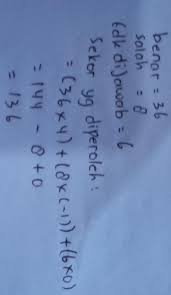 benar = 36
salah = 8
tdk dijawab = 6
Sekor yg diperoleh :
= (36 x 4) + (8 x (-1)) + (6 x 0)
= 144 - 8 + 0
= 136